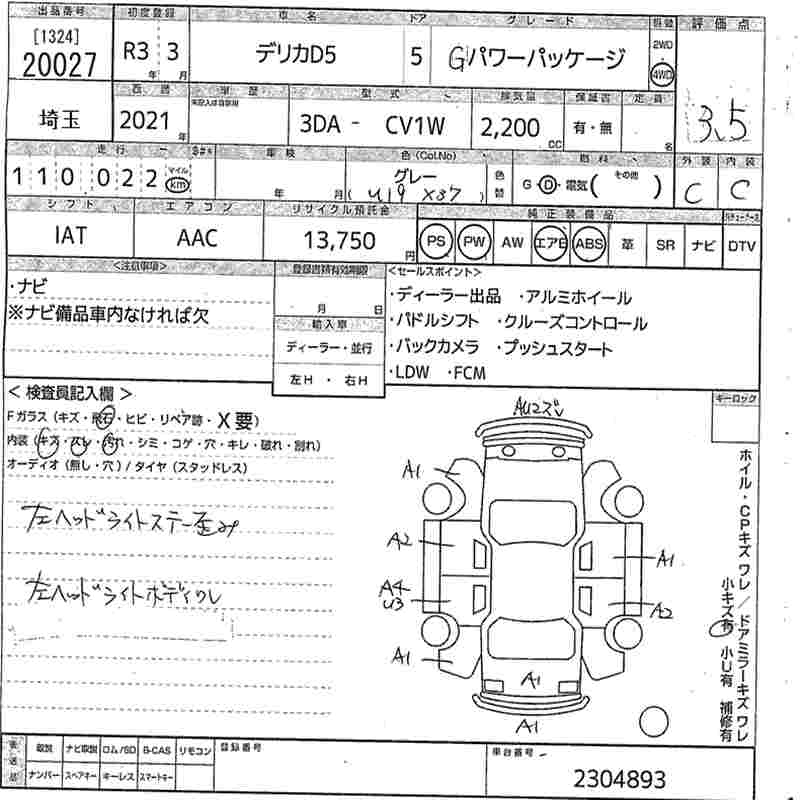 出品番号 初度登録 車名 ドア グレード 駆動 評価点
[1324] 20027 R3年 3月 デリカD5 5 Gパワーパッケージ 2WD 4WD 3.5
車歴 型式 排気量 保証書 定員
埼玉 2021年 3DA - CV1W 2,200cc 有・無 名
走行 車検 色(Col.No) 燃料 外装 内装
110,022 マイル km 年 月 グレー 色替 G・D・電気( その他 ) C C
(U19 X37)
シフト エアコン リサイクル預託金 純正装備品
IAT AAC 13,750円 PS PW AW エアB ABS 革 SR ナビ DTV
<注意事項> 登録書類有効期限 <セールスポイント>
・ナビ 月 日 ・ディーラー出品 ・アルミホイール
※ナビ備品車内なければ欠 輸入車 ・パドルシフト ・クルーズコントロール
ディーラー・並行 ・バックカメラ ・プッシュスタート
左H ・ 右H ・LDW ・FCM
< 検査員記入欄 > キーロック
Fガラス(キズ・飛石・ヒビ・リペア跡・X要)
内装(キズ・スレ・汚れ・シミ・コゲ・穴・キレ・破れ・割れ)
オーディオ(無し・穴)/タイヤ(スタッドレス)
左ヘッドライトステー歪み
左ヘッドライトボディワレ
AU2ズレ
A1
A2
A1
A4
U3
A2
A1
A1
A1
ホイル・CPキズワレ/ドアミラーキズワレ
小キズ有 小U有 補修有
後送品 取説 ナビ取説 ロム/SD B-CAS リモコン 登録番号 車台番号
ナンバー スペアキー キーレス スマートキー 2304893